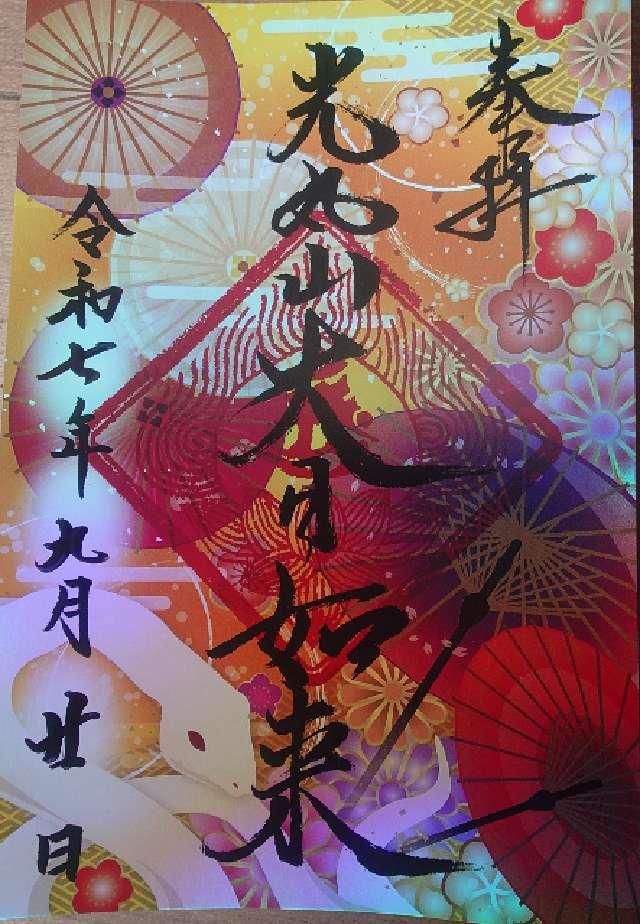 奉拝
光丸山大日如来
令和七年九月廿日